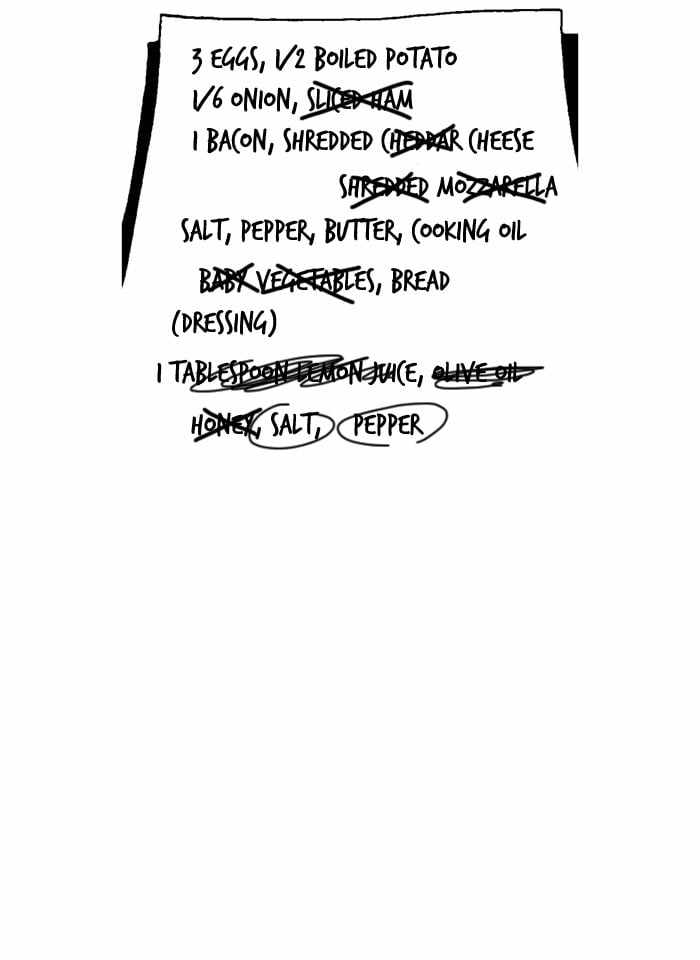 3 EGGS, 1/2 BOILED POTATO
1/6 ONION, SLICED HAM
1 BACON, SHREDDED CHEDDAR CHEESE
SHREDDED MOZZARELLA
SALT, PEPPER, BUTTER, COOKING OIL
BABY VEGETABLES, BREAD
(DRESSING)
1 TABLESPOON LEMON JUICE, OLIVE OIL
HONEY, SALT, PEPPER